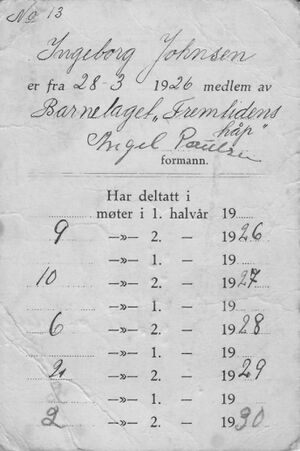 No 13
Ingeborg Johnsen
er fra 28-3 1926 medlem av
Barnelaget „Fremtidens
håp"
Paulsen
formann.
Har deltatt i
møter i 1. halvår 19
9 —»— 2. — 1926
—»— 1. — 19
10 —»— 2. — 1927
—»— 1. — 19
6 —»— 2. — 1928
—»— 1. — 19
21 —»— 2. — 1929
—»— 1. — 19
2 —»— 2. — 1930